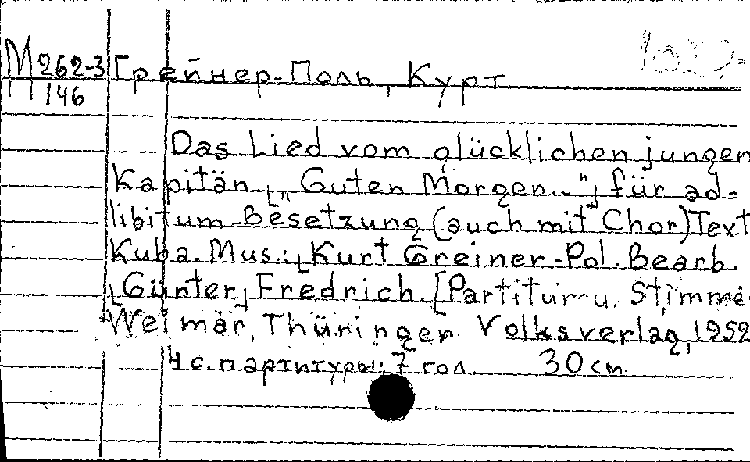 М 262-3
146
Грейнер-Поль, Курт
Das Lied vom glücklichen jungen
Kapitän [„Guten Morgen..."] für ad-
libitum Besetzung (auch mit Chor) Text
Kuba. Mus.: [Kurt Greiner-Pol. Bearb.
[Günter] Fredrich. [Partitur u. Stimme
Weimar, Thüringer Volksverlag, 1952
4 с. партитуры; 7 гол. 30 cm.